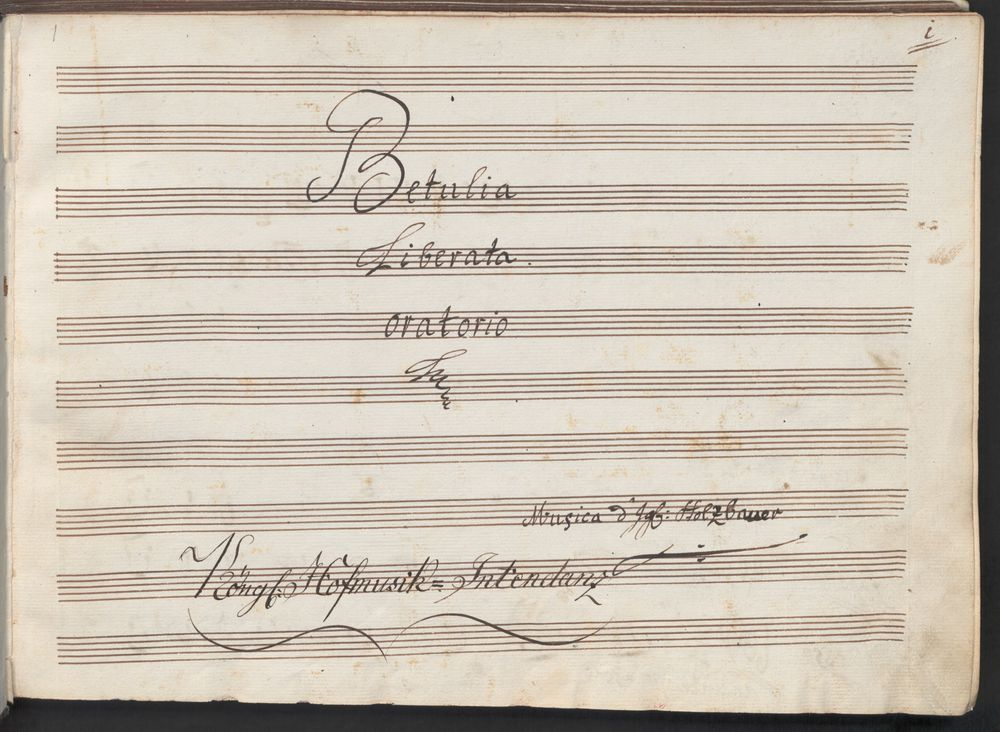 1
i
Betulia
Liberata.
oratorio
Musica d' Igħ: Holzbauer
Köngl: Hofmusik= Intendanz